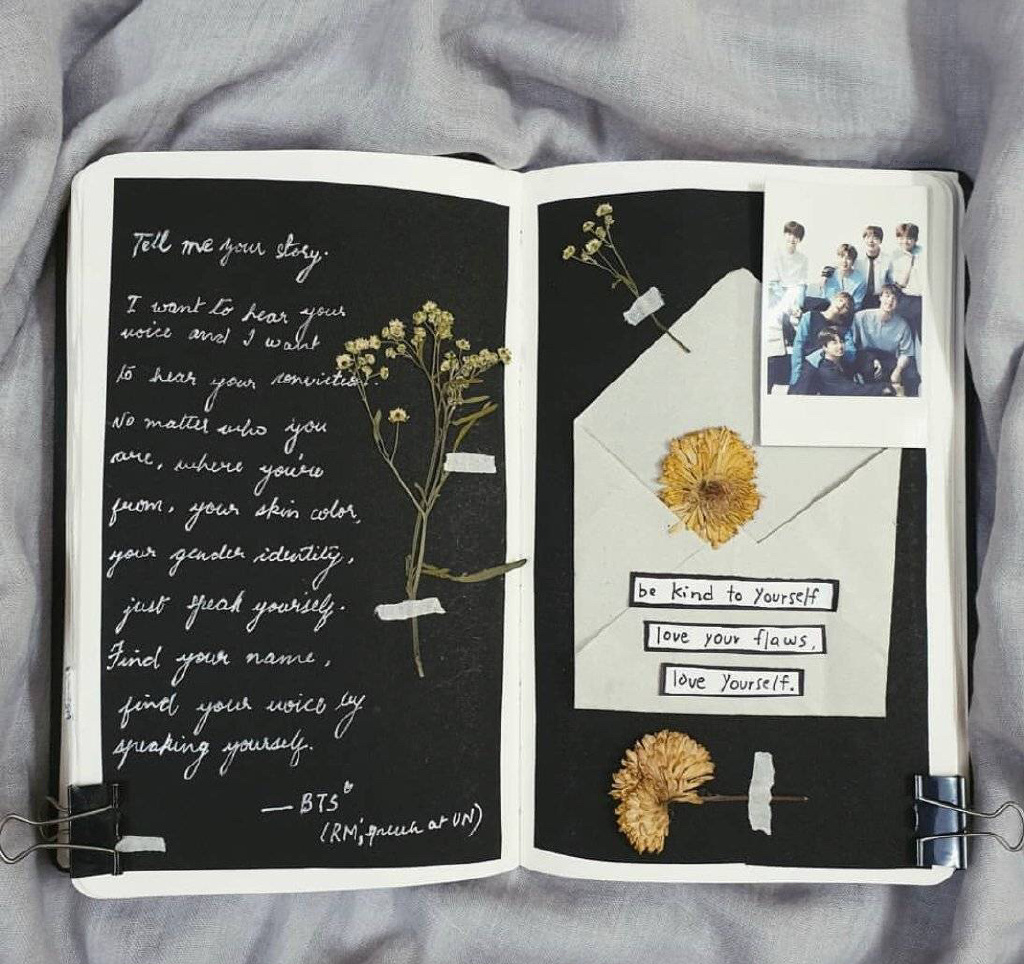 Tell me your story.
I want to hear your
voice and I want
to hear your conviction.
No matter who you
are, where you're
from, your skin color,
your gender identity,
just speak yourself.
Find your name,
find your voice by
speaking yourself.
— BTS
(RM, speech at UN)
be kind to yourself
love your flaws,
love yourself.